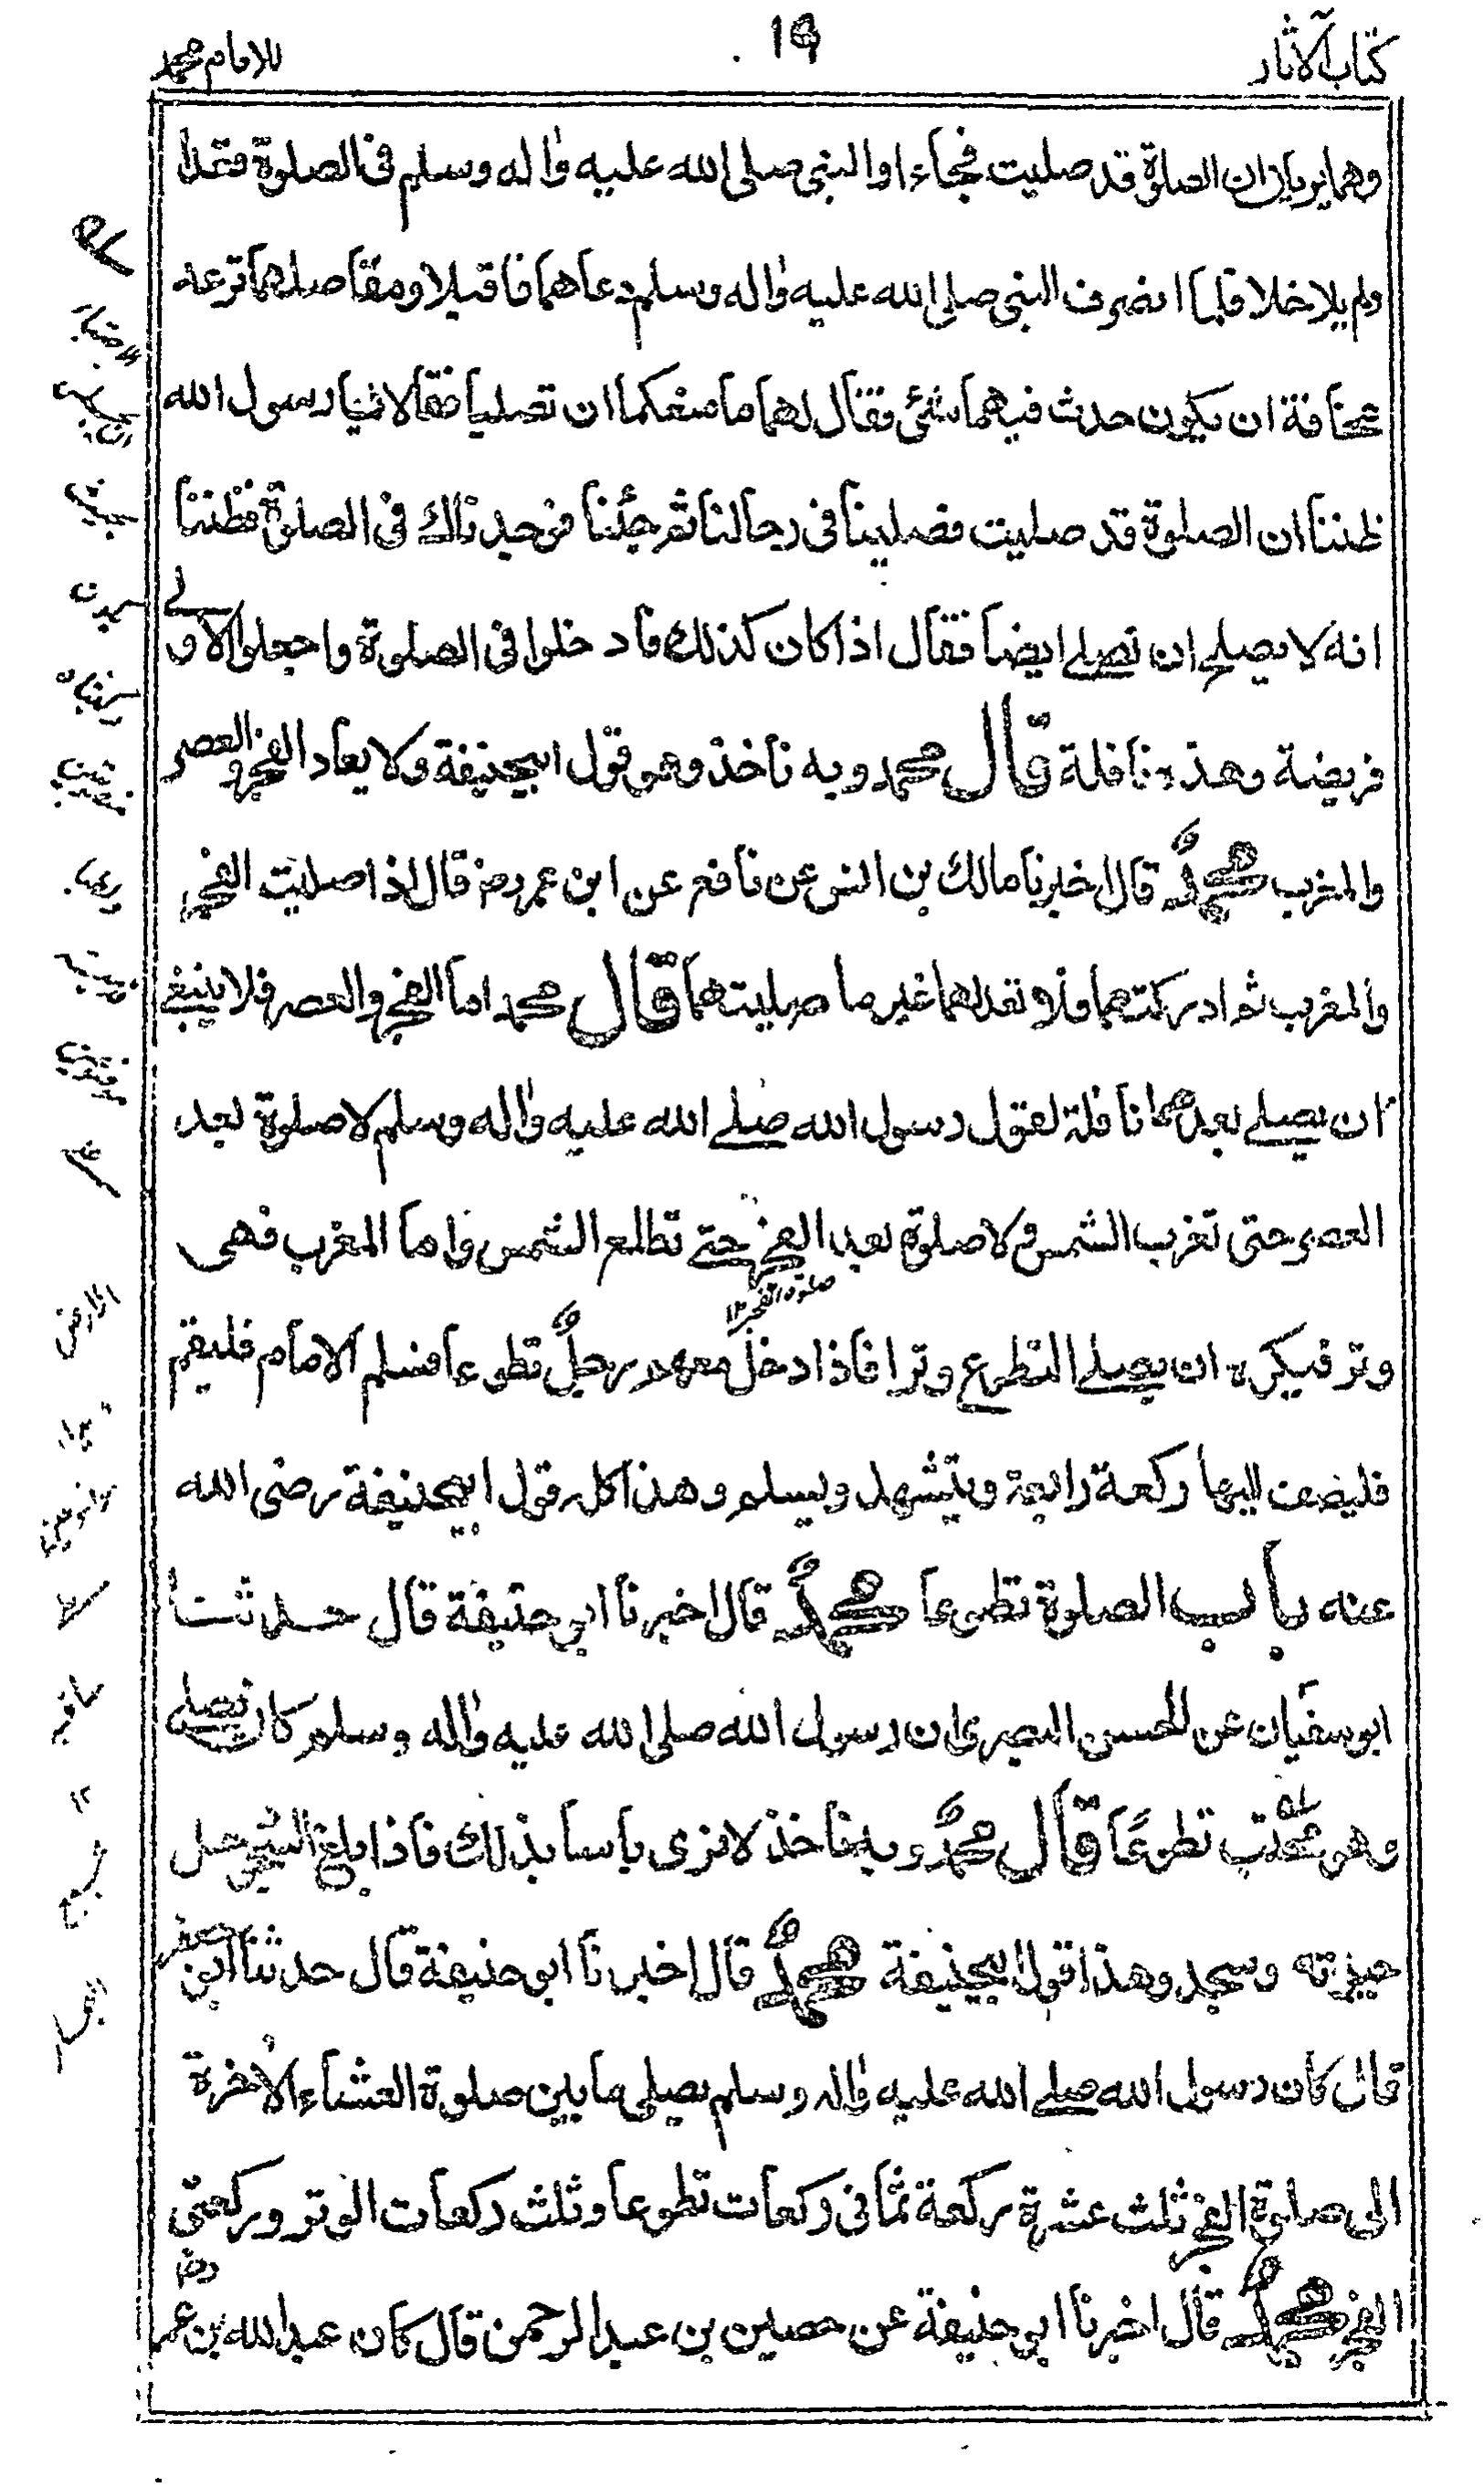 كتاب الآثار
١٩
للامام محمد
وهما يريان ان الصلوة قد صليت فجاءا والنبي صلى الله عليه واله وسلم في الصلوة فقعدا
ولم يدخلا فلما انصرف النبي صلى الله عليه واله وسلم دعاهما فاقبلا ومفاصلهما ترعد
مخافة ان يكون حدث فيهما شئ فقال لهما ما منعكما ان تصليا فقالا يا رسول الله
ظننا ان الصلوة قد صليت فصلينا في رحالنا ثم جئنا فوجدناك في الصلوة فظننا
انه لا يصلح ان نصلے ايضا فقال اذا كان كذلك فادخلوا في الصلوة واجعلوا الاولے
فريضة وهذه نافلة قال محمد وبه ناخذ وهو قول ابيحنيفة ولا يعاد الفجر والعصر
والمغرب محمدٌ قال اخبرنا مالك بن انس عن نافع عن ابن عمر رض قال اذا صليت الفجر
والمغرب ثم ادركتهما فلا تعد لهما غير ما صليتهما قال محمد اما الفجر والعصر فلا ينبغے
ان يصلے بعدهما نافلة لقول رسول الله صلے الله عليه واله وسلم لا صلوة بعد
العصر حتى تغرب الشمس ولا صلوة بعد الفجر حتے تطلع الشمس واما المغرب فهي
صلوة الفجر ١٢
وتر فيكره ان يصلے التطوع وترا فاذا دخل معهم رجلٌ تطوعا فسلم الامام فليقم
فليضف اليها ركعة رابعة ويتشهد ويسلم وهذا كله قول ابيحنيفة رضى الله
عنه باب الصلوة تطوعا محمدٌ قال اخبرنا ابو حنيفة قال حدثنا
ابو سفيان عن الحسن البصري ان رسول الله صلى الله عليه واله وسلم كان يصلے
وهو محتب تطوعًا قال محمدٌ وبه ناخذ لا نرى باسا بذلك فاذا بلغ السجود حل
حبوته وسجد وهذا قول ابيحنيفة محمدٌ قال اخبرنا ابو حنيفة قال حدثنا ابو جعفر
قال كان رسول الله صلے الله عليه واله وسلم يصلي ما بين صلوة العشاء الآخرة
الى صلوة الفجر ثلث عشرة ركعة ثماني ركعات تطوعا وثلث ركعات الوتر وركعتي
الفجر محمدٌ قال اخبرنا ابو حنيفة عن حصين بن عبد الرحمن قال كان عبد الله بن عمر رض